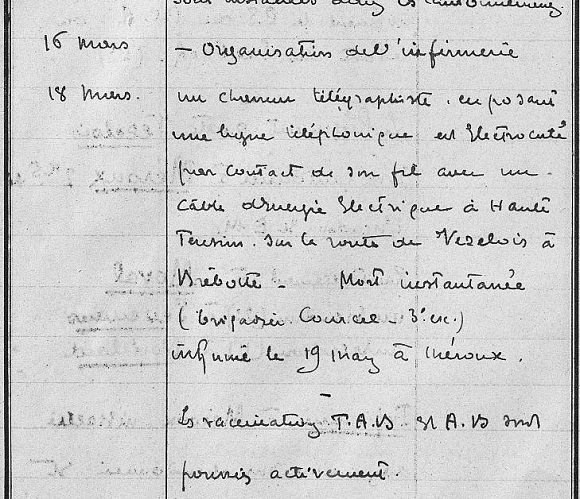 sous installés dans les cantonnements
16 mars — Organisation de l'infirmerie
18 Mars. un chasseur télégraphiste, en posant
une ligne téléphonique est électrocuté
par contact de son fil avec un
câble d'énergie électrique à Haute
Tension. Sur la route de Vezelois à
Brebotte — Mort instantanée
(brigadier — 3e esc.)
inhumé le 19 mars à Méroux.
Les vaccinations T.A.B. et A.B sont
poussées activement.